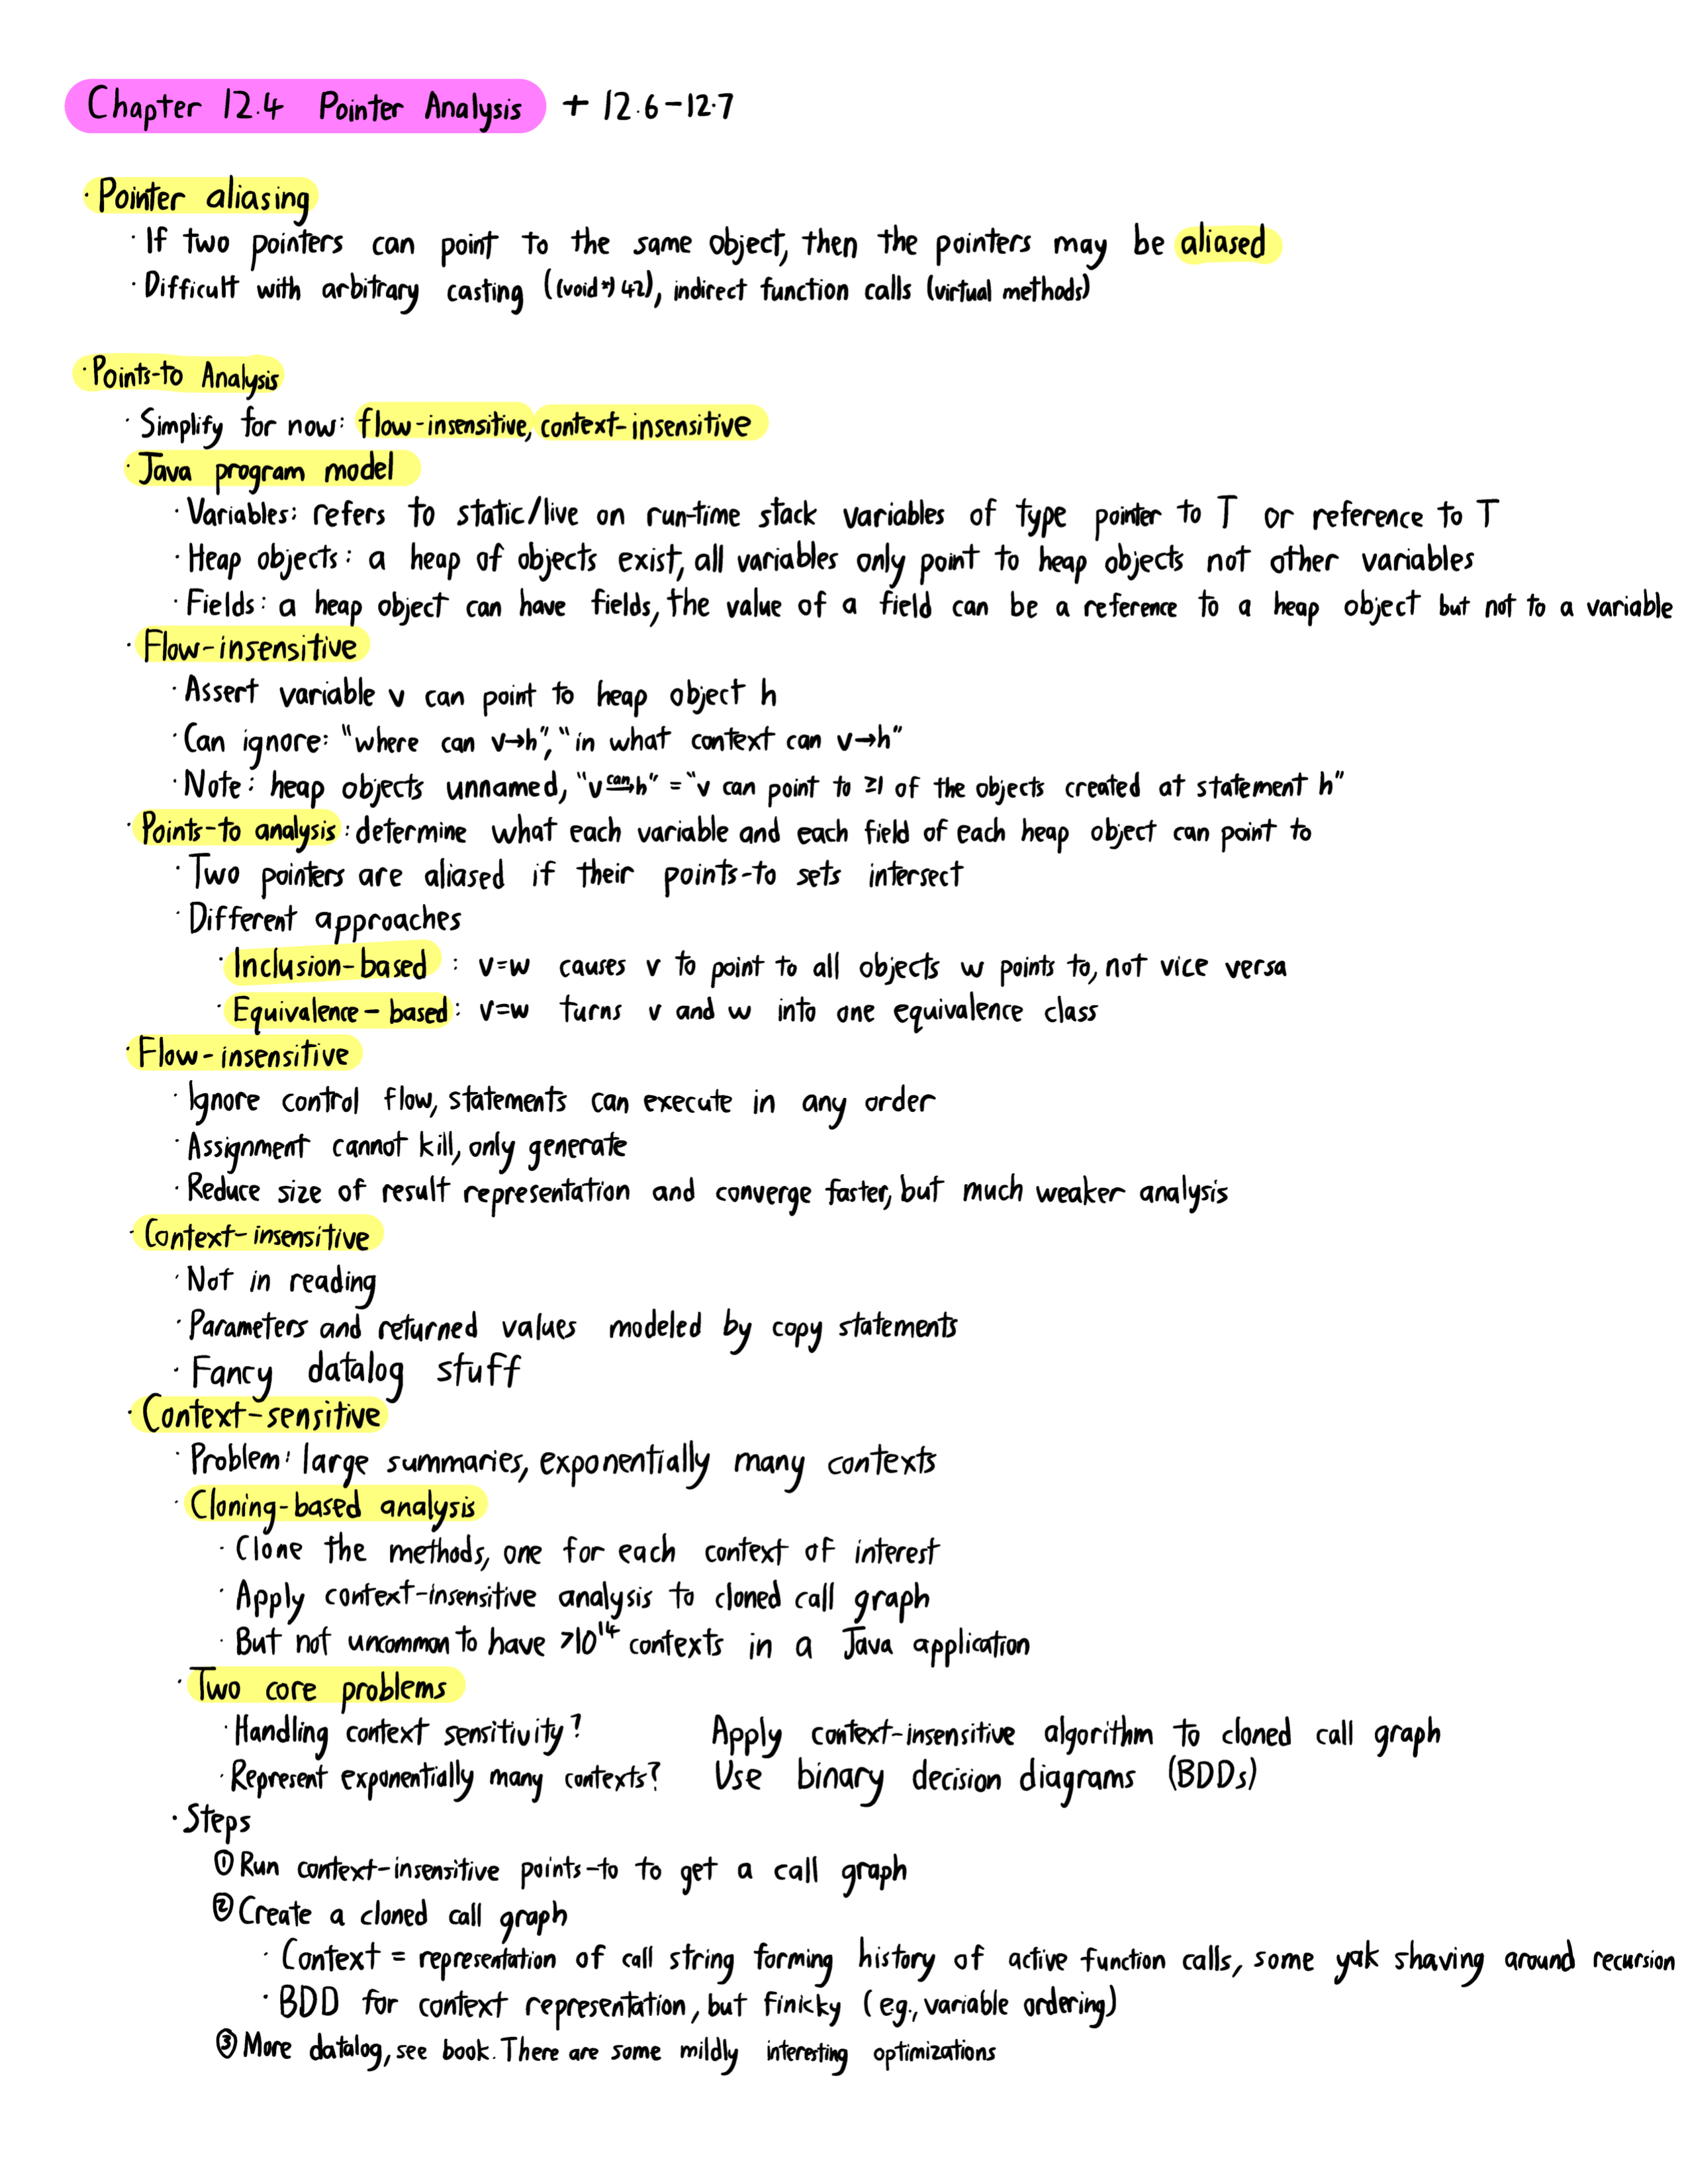 Chapter 12.4 Pointer Analysis + 12.6-12.7
· Pointer aliasing
· If two pointers can point to the same object, then the pointers may be aliased
· Difficult with arbitrary casting ((void*) 42), indirect function calls (virtual methods)
· Points-to Analysis
· Simplify for now: flow-insensitive, context-insensitive
· Java program model
· Variables: refers to static/live on run-time stack variables of type pointer to T or reference to T
· Heap objects: a heap of objects exist, all variables only point to heap objects not other variables
· Fields: a heap object can have fields, the value of a field can be a reference to a heap object but not to a variable
· Flow-insensitive
· Assert variable v can point to heap object h
· Can ignore: "where can v→h", "in what context can v→h"
· Note: heap objects unnamed, "v can→ h" = "v can point to ≥1 of the objects created at statement h"
· Points-to analysis: determine what each variable and each field of each heap object can point to
· Two pointers are aliased if their points-to sets intersect
· Different approaches
· Inclusion-based : v=w causes v to point to all objects w points to, not vice versa
· Equivalence-based: v=w turns v and w into one equivalence class
· Flow-insensitive
· Ignore control flow, statements can execute in any order
· Assignment cannot kill, only generate
· Reduce size of result representation and converge faster, but much weaker analysis
· Context-insensitive
· Not in reading
· Parameters and returned values modeled by copy statements
· Fancy datalog stuff
· Context-sensitive
· Problem: large summaries, exponentially many contexts
· Cloning-based analysis
· Clone the methods, one for each context of interest
· Apply context-insensitive analysis to cloned call graph
· But not uncommon to have >10¹⁴ contexts in a Java application
· Two core problems
· Handling context sensitivity? Apply context-insensitive algorithm to cloned call graph
· Represent exponentially many contexts? Use binary decision diagrams (BDDs)
· Steps
① Run context-insensitive points-to to get a call graph
② Create a cloned call graph
· Context = representation of call string forming history of active function calls, some yak shaving around recursion
· BDD for context representation, but finicky (eg., variable ordering)
③ More datalog, see book. There are some mildly interesting optimizations